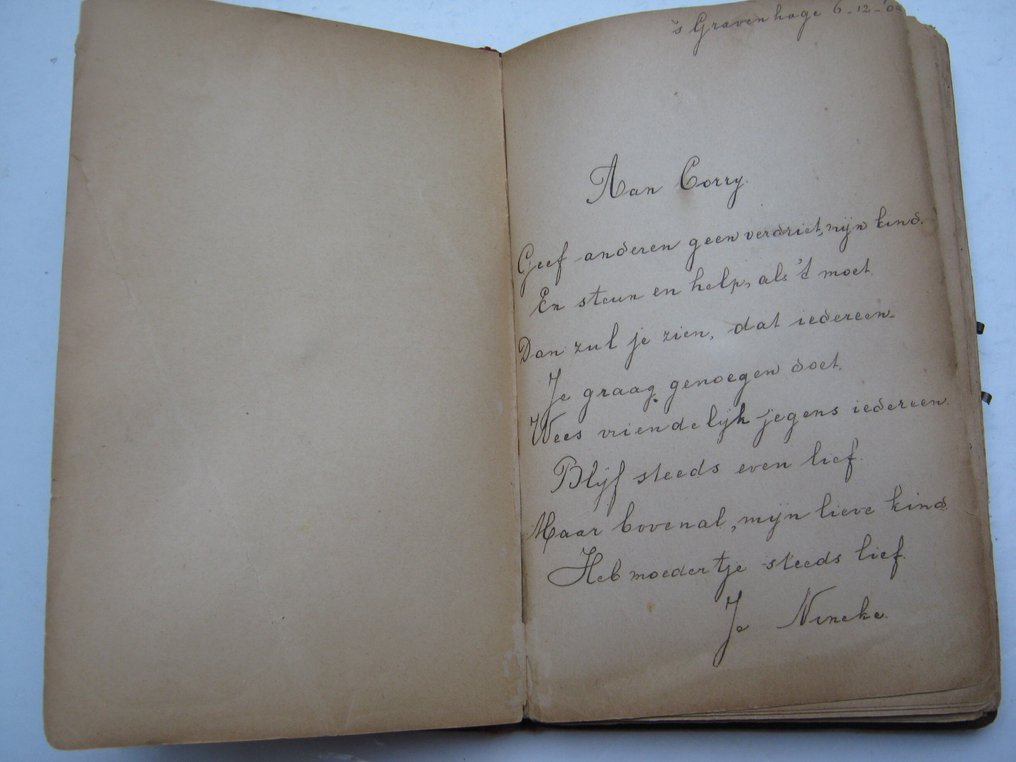 's Gravenhage 6-12-'0
Aan Corry.
Geef anderen geen verdriet, mijn kind.
En steun en help, als 't moet.
Dan zul je zien, dat iedereen
Je graag genoegen doet.
Wees vriendelijk jegens iedereen.
Blijf steeds even lief.
Maar bovenal, mijn lieve kind
Heb moedertje steeds lief.
Je Nineke.